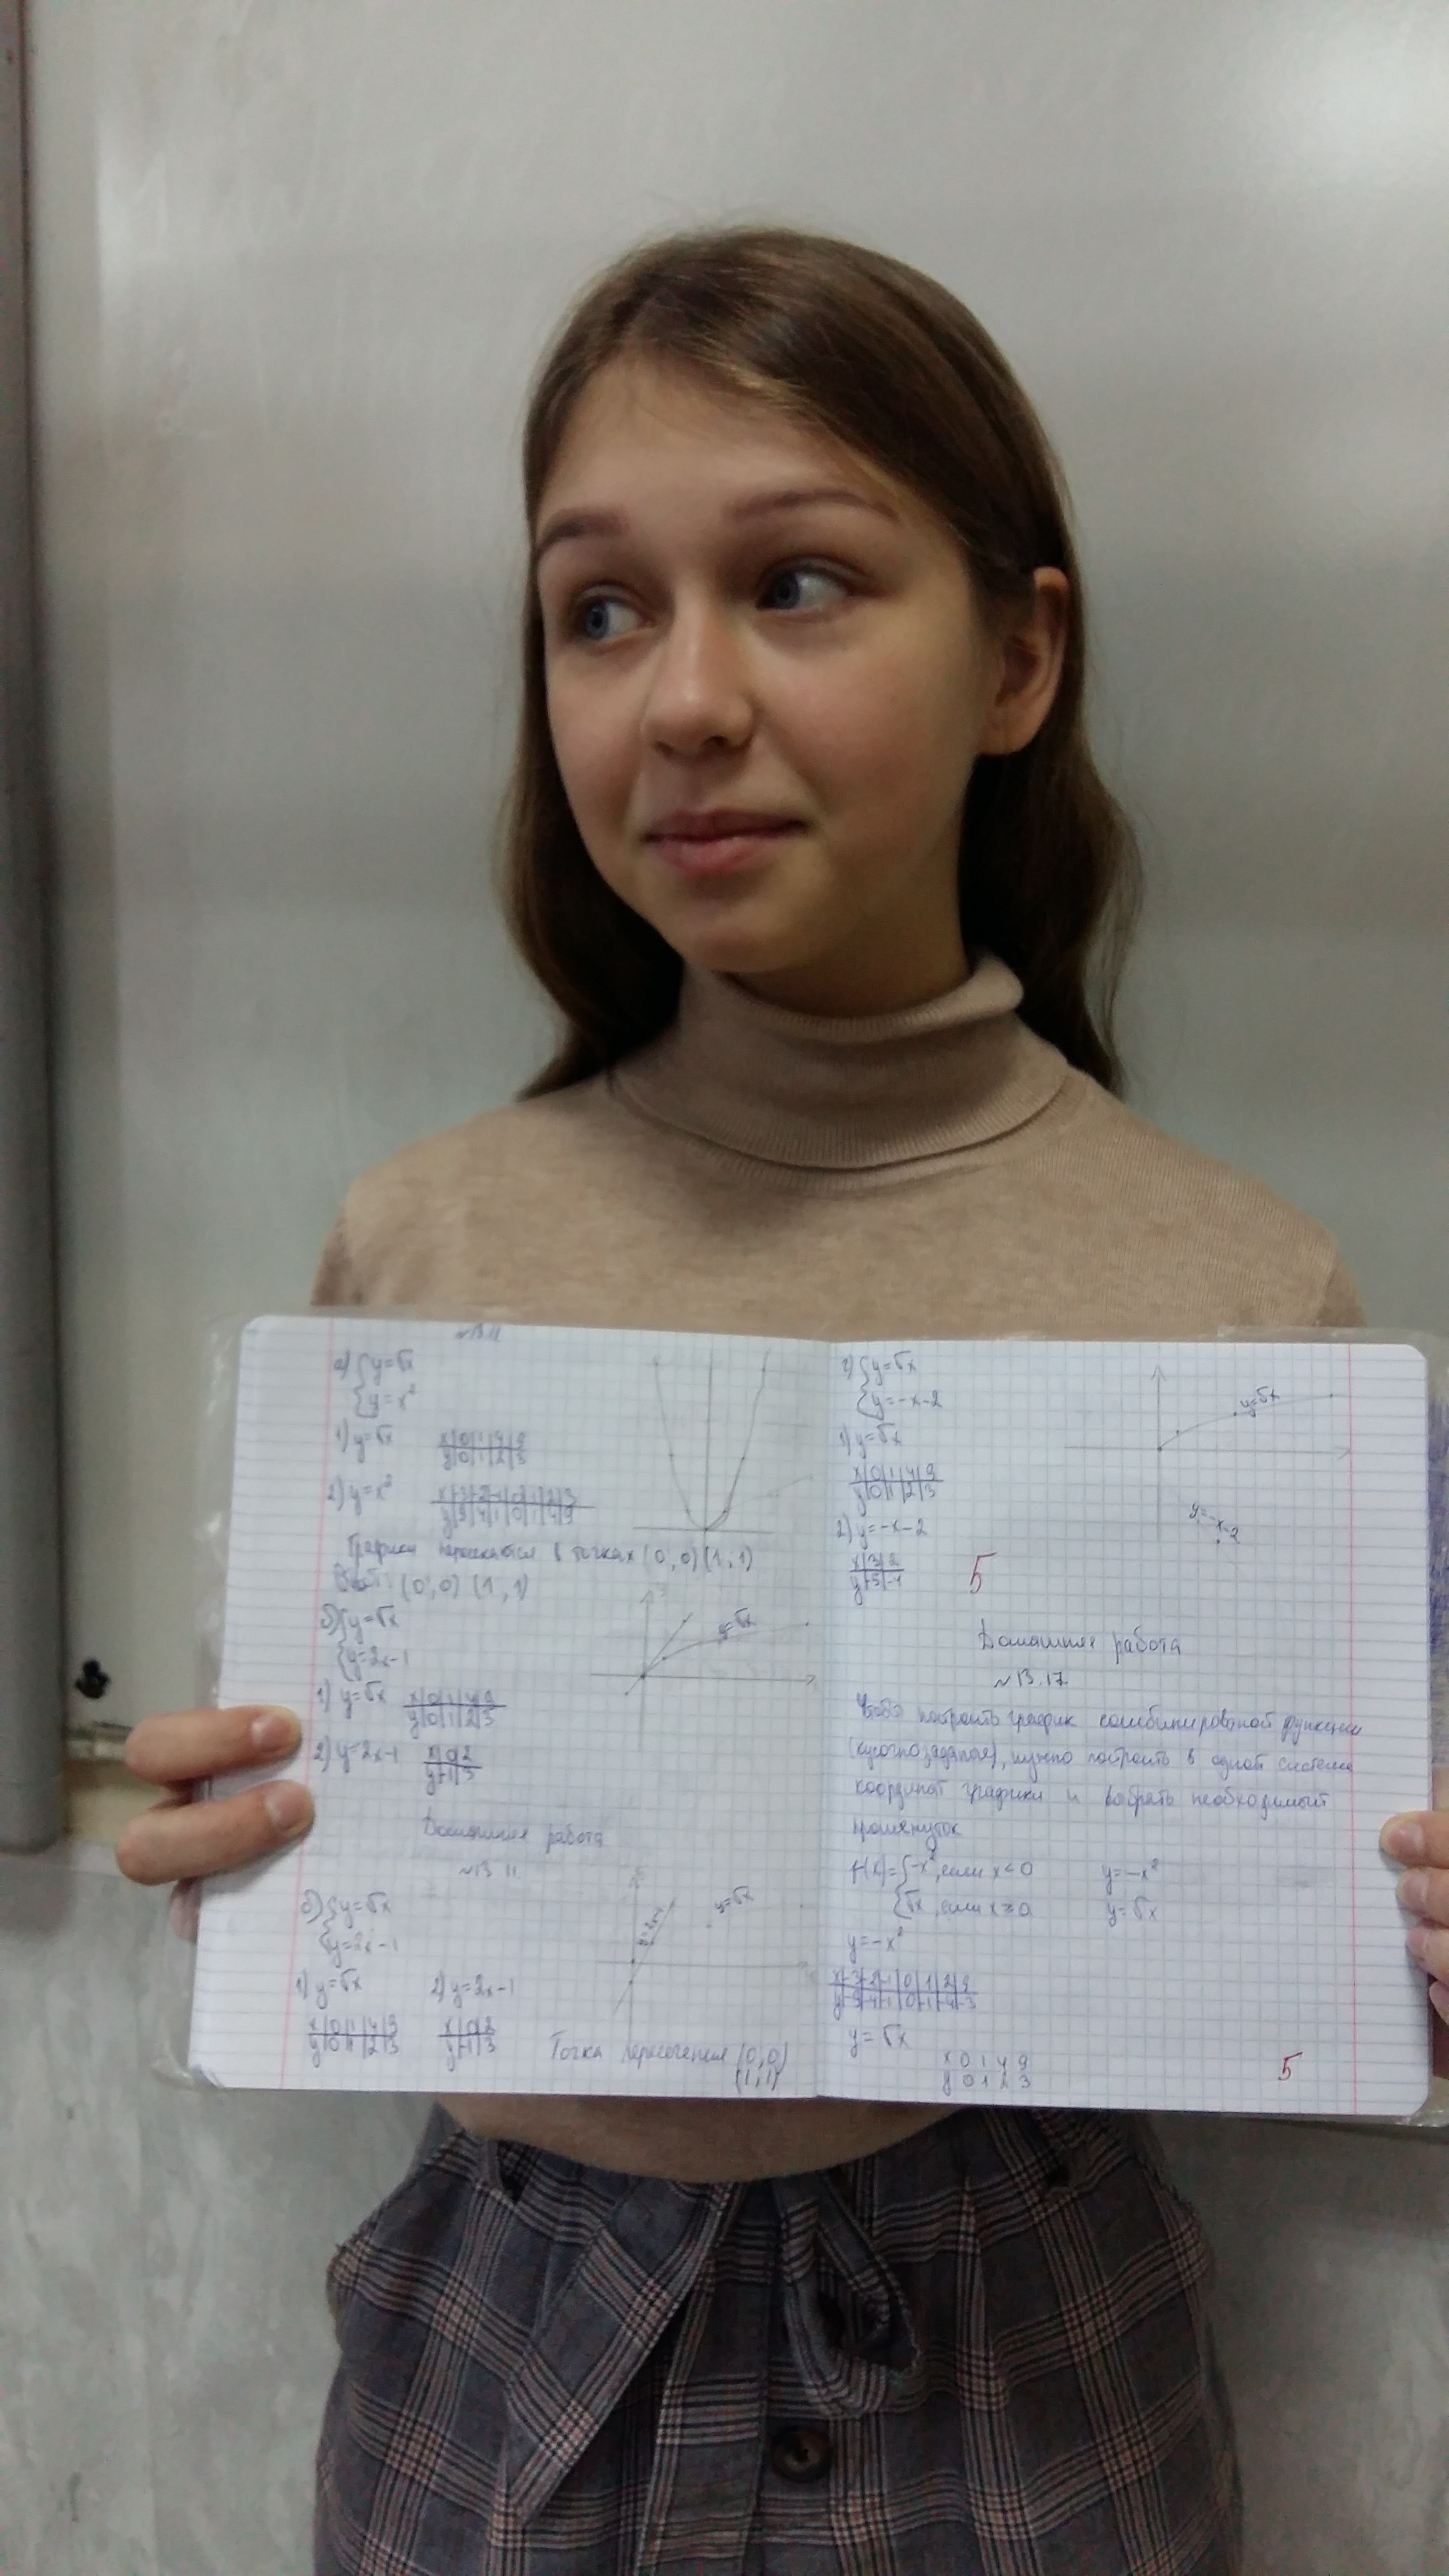 №13.11
а) {y=√x
{y=x²
1) y=√x
x|0|1|4|9
y|0|1|2|3
2) y=x²
x|-3|-2|-1|0|1|2|3
y|9|4|1|0|1|4|9
Графики пересекаются в точках (0;0) (1;1)
(0;0) (1;1)
б) {y=√x
{y=2x-1
y=√x
1) y=√x
x|0|1|4|9
y|0|1|2|3
2) y=2x-1
x|0|2
y|-1|3
Домашняя работа
№13.11
б) {y=√x
{y=2x-1
y=√x
1) y=√x
x|0|1|4|9
y|0|1|2|3
2) y=2x-1
x|0|2
y|-1|3
Точка пересечения (0;0)
(1;1)
г) {y=√x
{y=-x-2
y=√x
1) y=√x
x|0|1|4|9
y|0|1|2|3
y=-x-2
2) y=-x-2
x|3|2
5
Домашняя работа
№13.17
Чтобы построить график комбинированой функции
нужно построить в одной системе
координат графики и выбрать необходимый
промежуток
f(x)={-x², если x<0
{√x, если x≥0
y=-x²
y=√x
y=-x²
y=√x
x 0 1 4 9
y 0 1 2 3
5